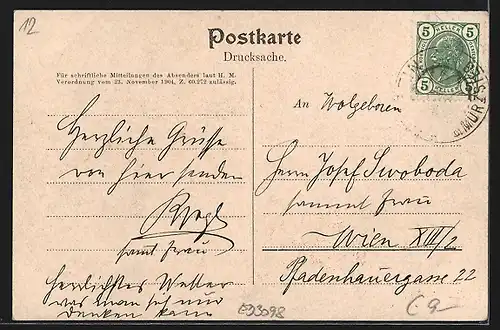 12
Postkarte
Drucksache.
Für schriftliche Mitteilungen des Absenders laut H. M.
Verordnung vom 23. November 1904, Z. 60.272 zulässig.
5 HELLER 5
5 HELLER 5
MÜRZ
An Wolgeboren
Herrn Josef Swoboda
sammt Frau
Wien XIII/2
Pfadenhauergasse 22
Herzliche Grüsse
von hier senden
samt Frau
herrlichstes Wetter
was man sich nur
denken kann
E93098